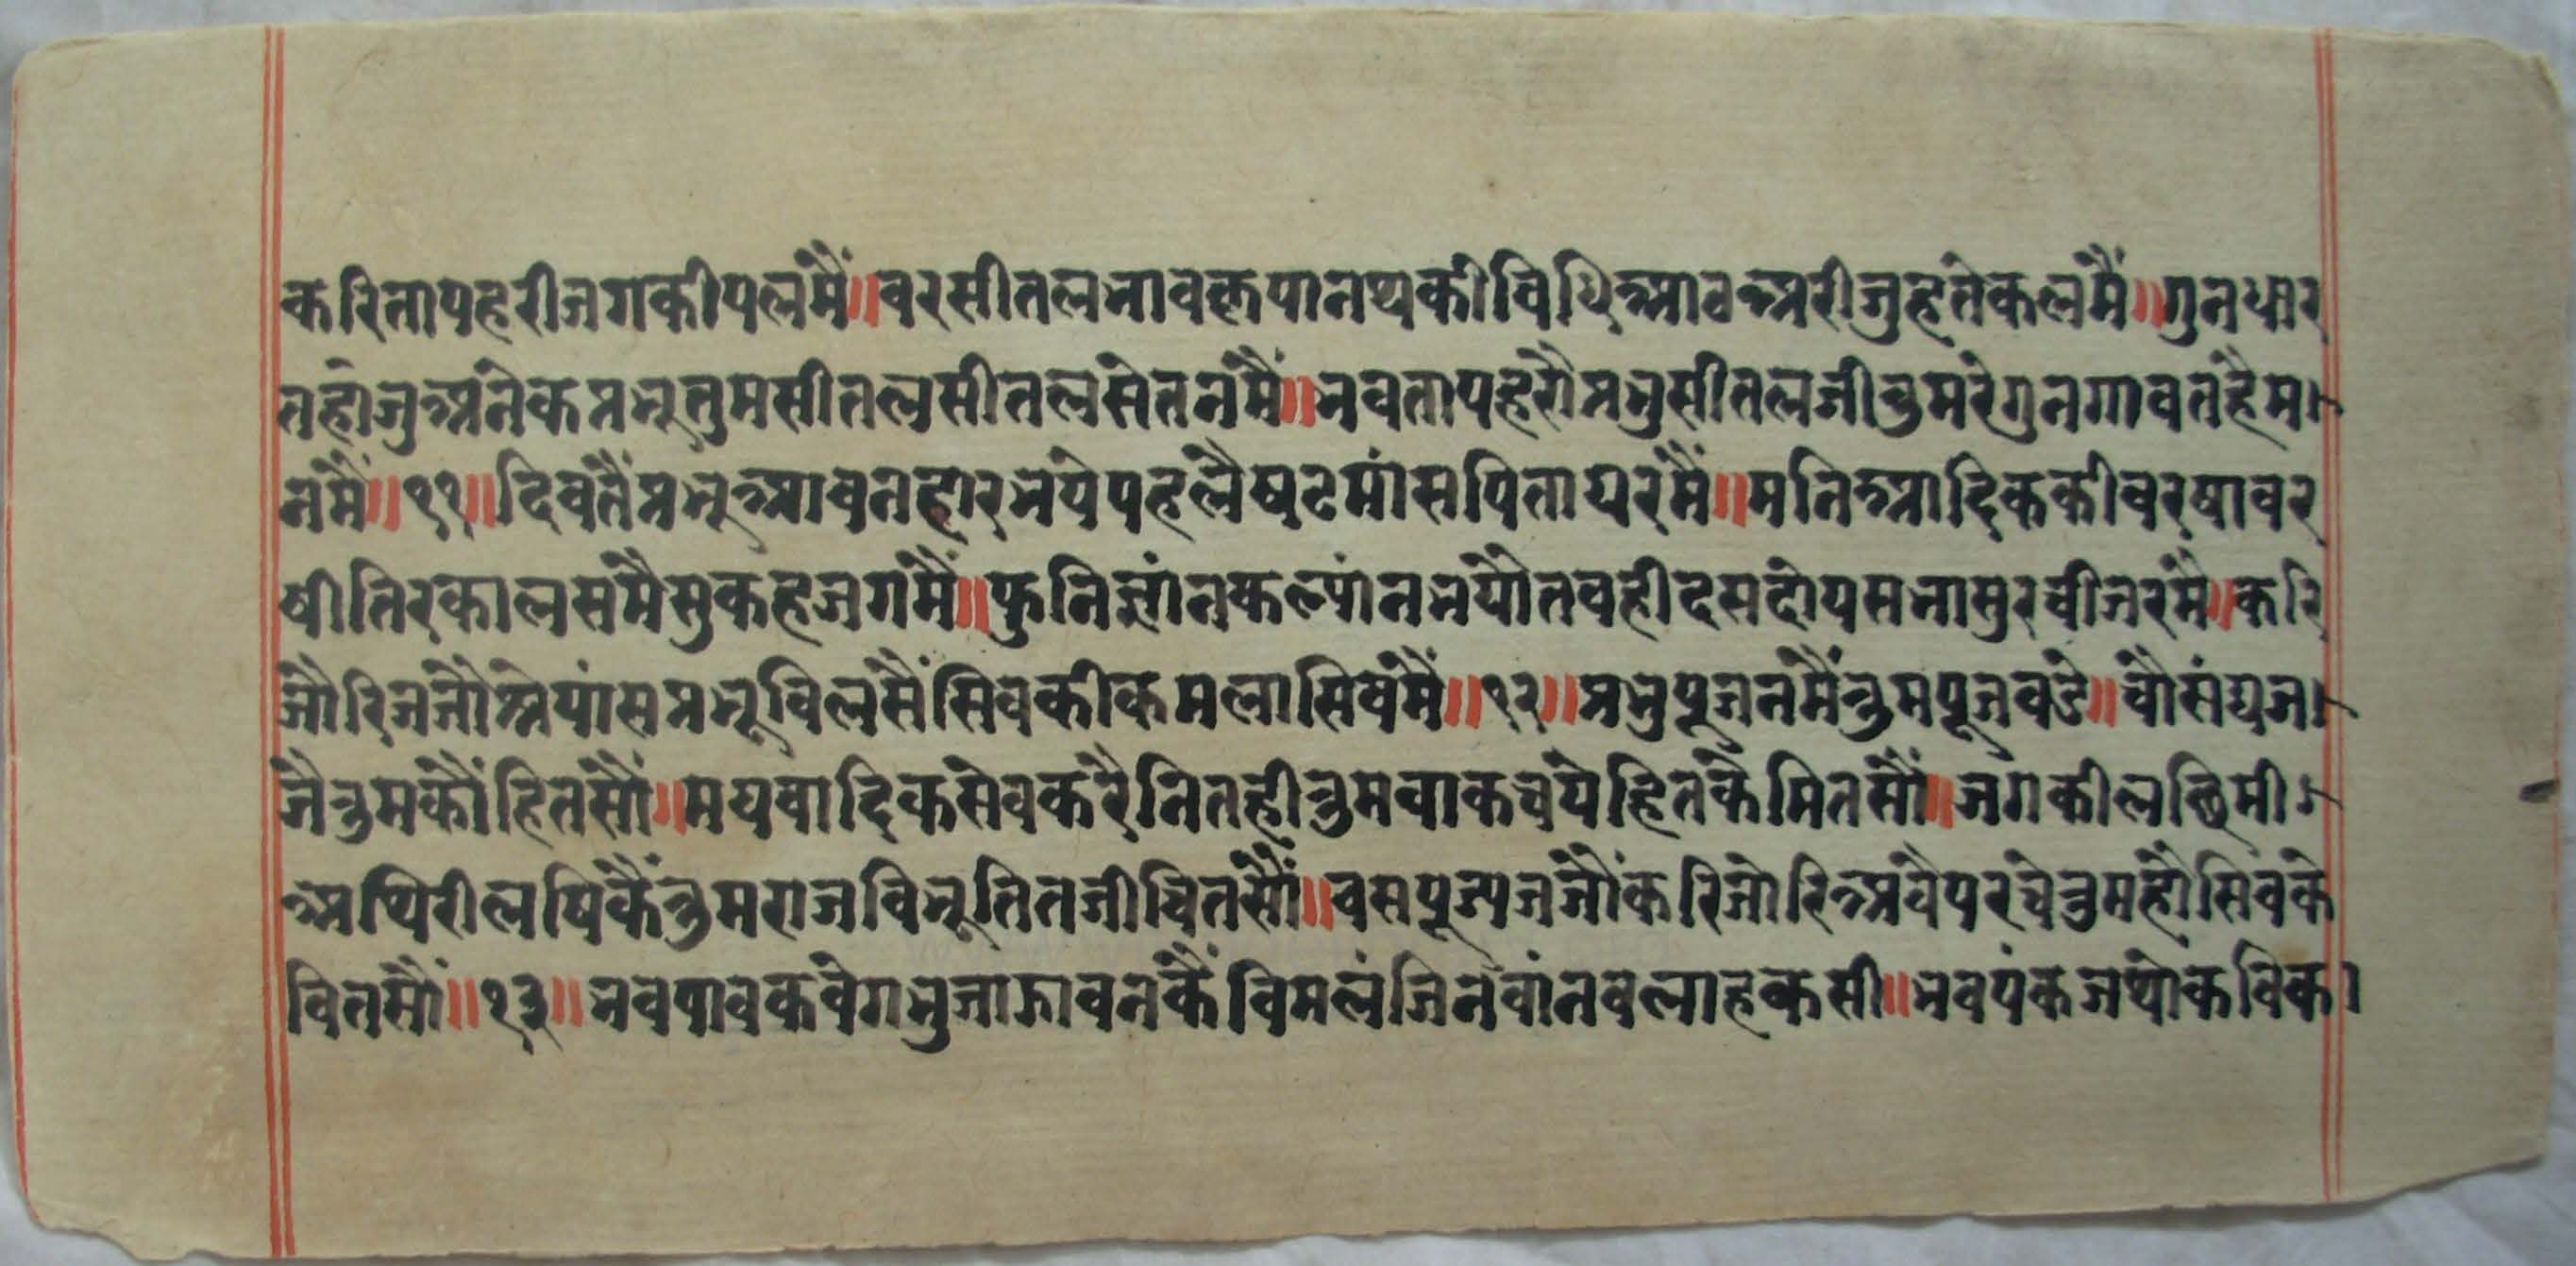 करितापहरीजगकीपलमैं॥वरसीतलभावकृपानथकीविधिआवअरीजुहतेकलमैं॥गुनधार
तहोजुअनेकप्रभूतुमसीतलसीतलसेतनमैं॥भवतापहरौप्रभुसीतलजीतुमरेगुनगावतहैम।
नमैं॥११॥दिवतैंप्रभूआवनहारभयेपहलैषटमांसपिताघरमैं॥मतिआदिककीवरषावर
षीतिरकालसमैसुकहजगमैं॥फुनिज्ञांनकल्यांनभयौतवहीदससदोयसभासुरवीजरमै॥करि
जोरिजजौश्रेयांसप्रभूविलसैंसिवकीकमलासिषमैं॥१२॥प्रभुपूजनमैंतुमपूजवडे॥चौसंघज।
जैतुमकौंहितसौं॥मघवादिकसेवकरैनितहीतुमवाकचयेहितकैमितसौं॥जगकीलछिमी।
अथिरीलषिकैंतुमराजविभूतितजीचितसौं॥वसपूज्यजजौंकरिजोरिअवैपरचेतुमहौसिवके
वितसौं॥१३॥भवपावकवेगभुजाऊावनकैंविमलंजिनवांनवलाहकसी॥भवपंकजथोकविक।